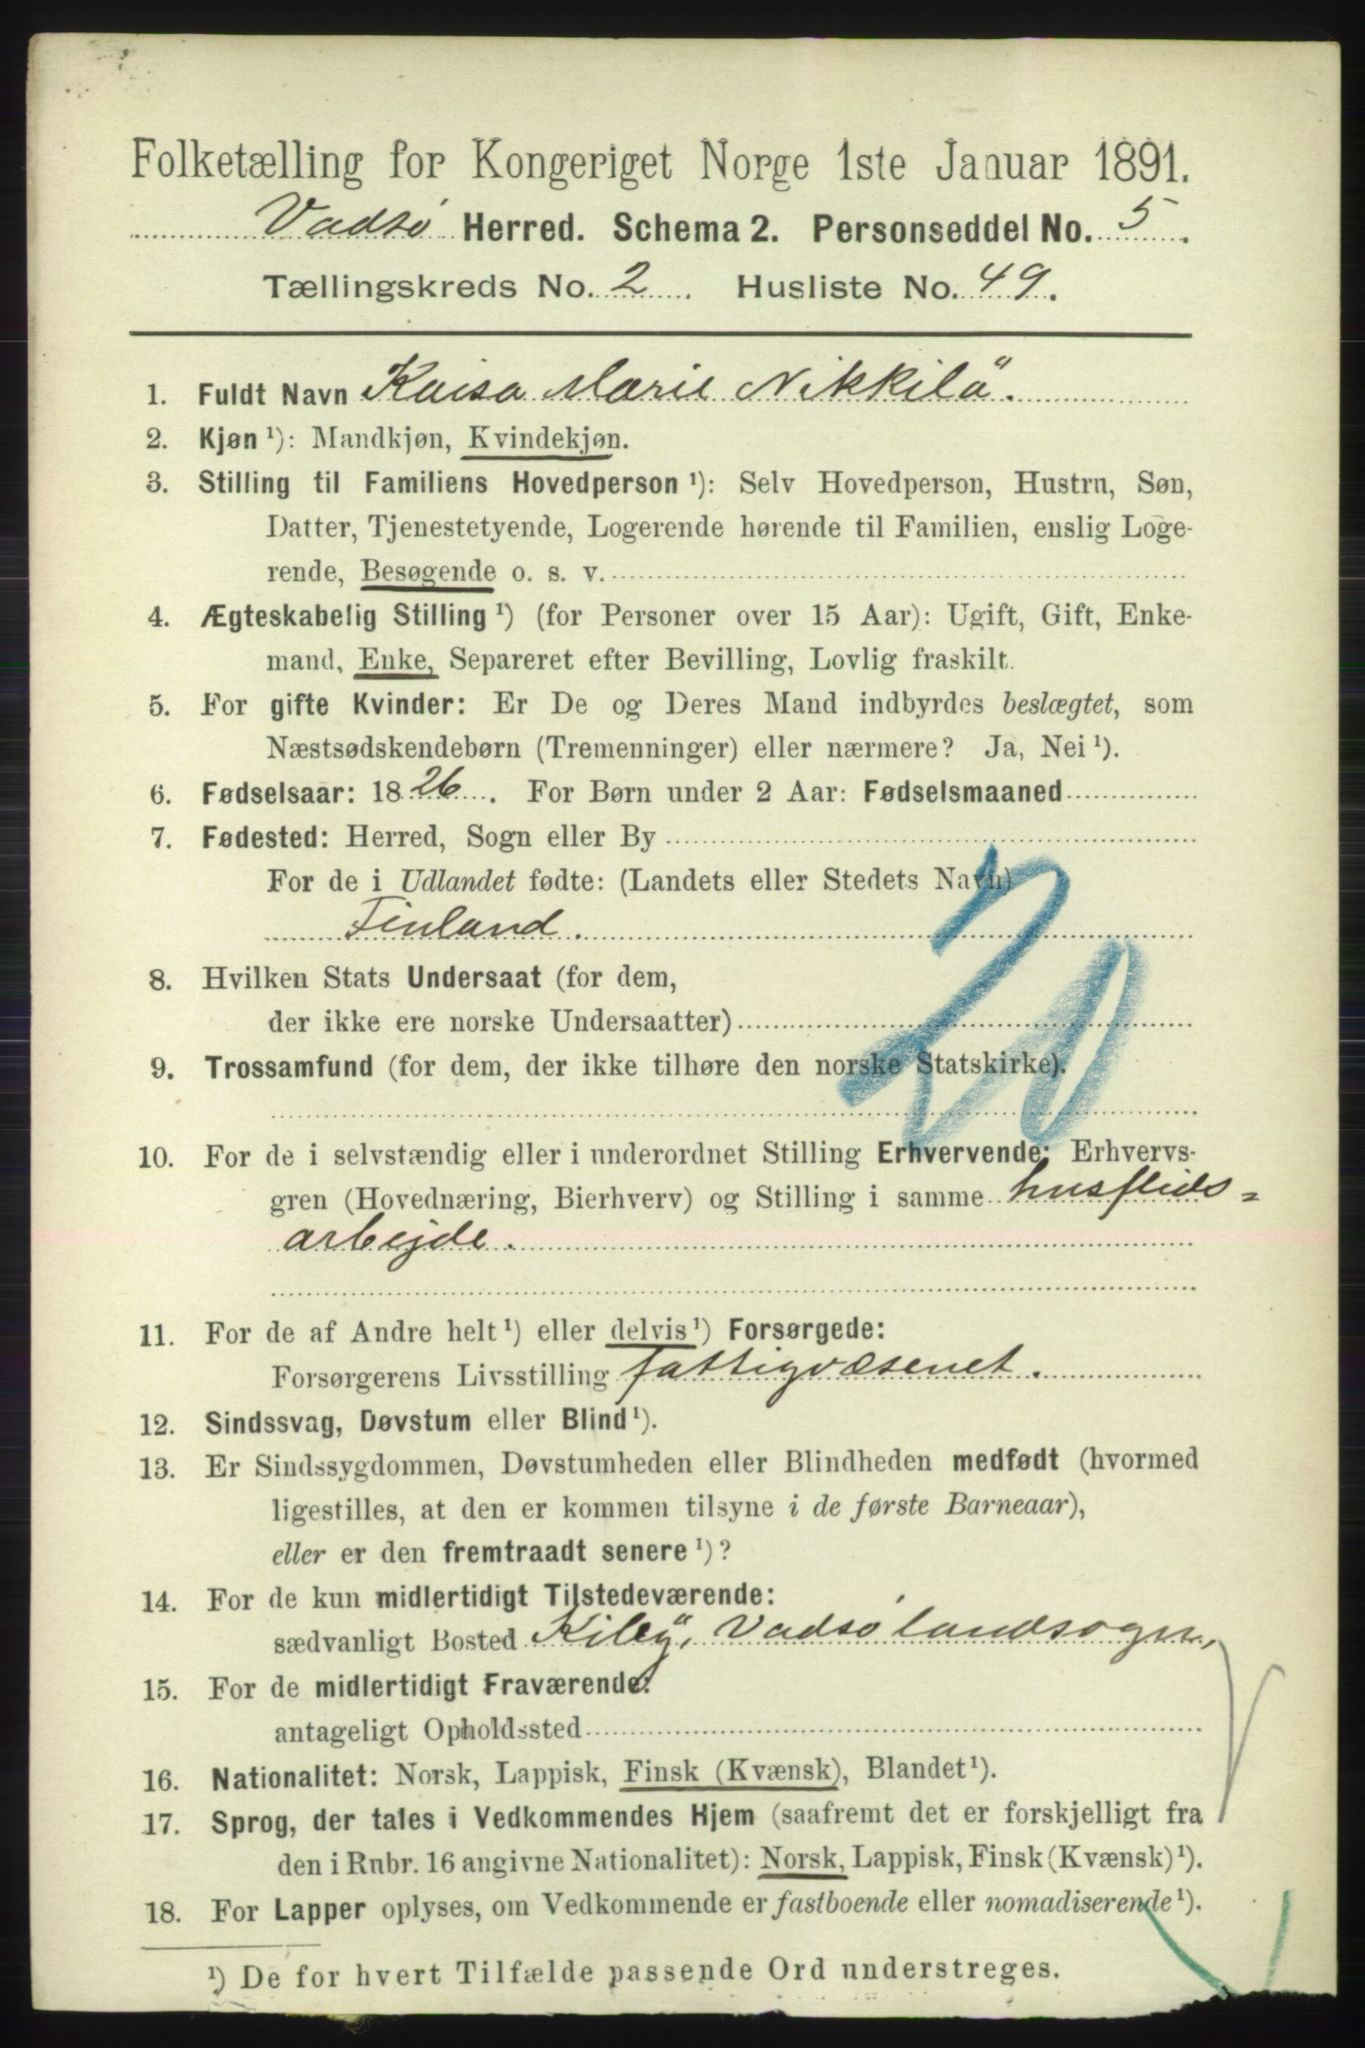 Folketælling for Kongeriget Norge 1ste Januar 1891.
Vadsø Herred. Schema 2. Personseddel No. 5.
Tællingskreds No. 2. Husliste No. 49.
1. Fuldt Navn Kaisa Marie Nikkilä.
2. Kjøn ¹): Mandkjøn, Kvindekjøn.
3. Stilling til Familiens Hovedperson ¹): Selv Hovedperson, Hustru, Søn,
Datter, Tjenestetyende, Logerende hørende til Familien, enslig Loge-
rende, Besøgende o. s. v.
4. Ægteskabelig Stilling ¹) (for Personer over 15 Aar): Ugift, Gift, Enke-
mand, Enke, Separeret efter Bevilling, Lovlig fraskilt.
5. For gifte Kvinder: Er De og Deres Mand indbyrdes beslægtet, som
Næstsødskendebørn (Tremenninger) eller nærmere? Ja, Nei ¹).
6. Fødselsaar: 1826. For Børn under 2 Aar: Fødselsmaaned
7. Fødested: Herred, Sogn eller By
For de i Udlandet fødte: (Landets eller Stedets Navn)
Finland.
20
8. Hvilken Stats Undersaat (for dem,
der ikke ere norske Undersaatter)
9. Trossamfund (for dem, der ikke tilhøre den norske Statskirke).
10. For de i selvstændig eller i underordnet Stilling Erhvervende: Erhvervs-
gren (Hovednæring, Bierhverv) og Stilling i samme husflids=
arbejde.
11. For de af Andre helt ¹) eller delvis ¹) Forsørgede:
Forsørgerens Livsstilling fattigvæsenet.
12. Sindssvag, Døvstum eller Blind ¹).
13. Er Sindssygdommen, Døvstumheden eller Blindheden medfødt (hvormed
ligestilles, at den er kommen tilsyne i de første Barneaar),
eller er den fremtraadt senere ¹)?
14. For de kun midlertidigt Tilstedeværende:
sædvanligt Bosted Kiby, Vadsø landsogn,
15. For de midlertidigt Fraværende:
antageligt Opholdssted
16. Nationalitet: Norsk, Lappisk, Finsk (Kvænsk), Blandet ¹).
17. Sprog, der tales i Vedkommendes Hjem (saafremt det er forskjelligt fra
den i Rubr. 16 angivne Nationalitet): Norsk, Lappisk, Finsk (Kvænsk) ¹).
18. For Lapper oplyses, om Vedkommende er fastboende eller nomadiserende ¹).
¹) De for hvert Tilfælde passende Ord understreges.